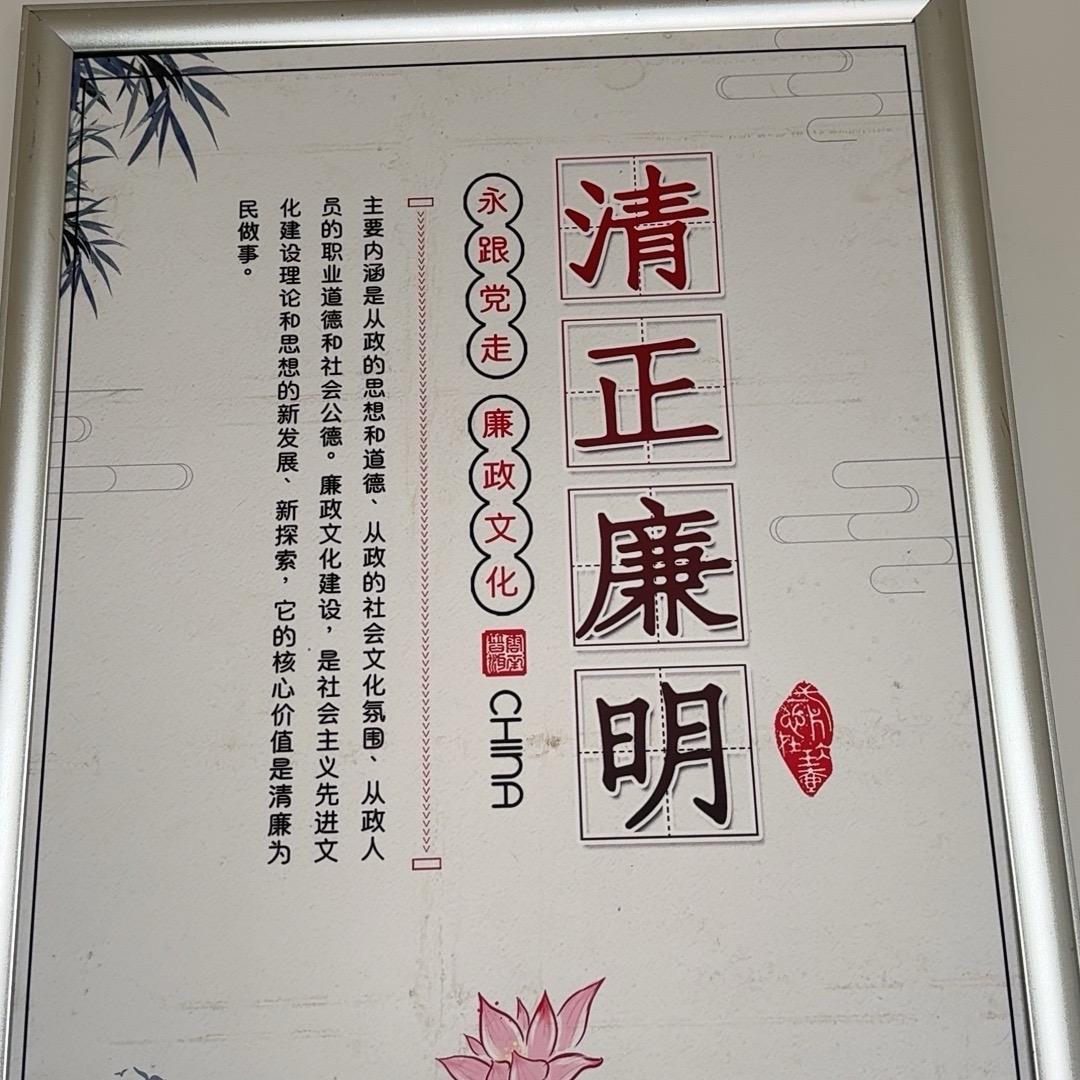 清正廉明
永跟党走 廉政文化
CHINA
主要内涵是从政的思想和道德、从政的社会文化氛围、从政人
员的职业道德和社会公德。廉政文化建设，是社会主义先进文
化建设理论和思想的新发展、新探索，它的核心价值是清廉为
民做事。